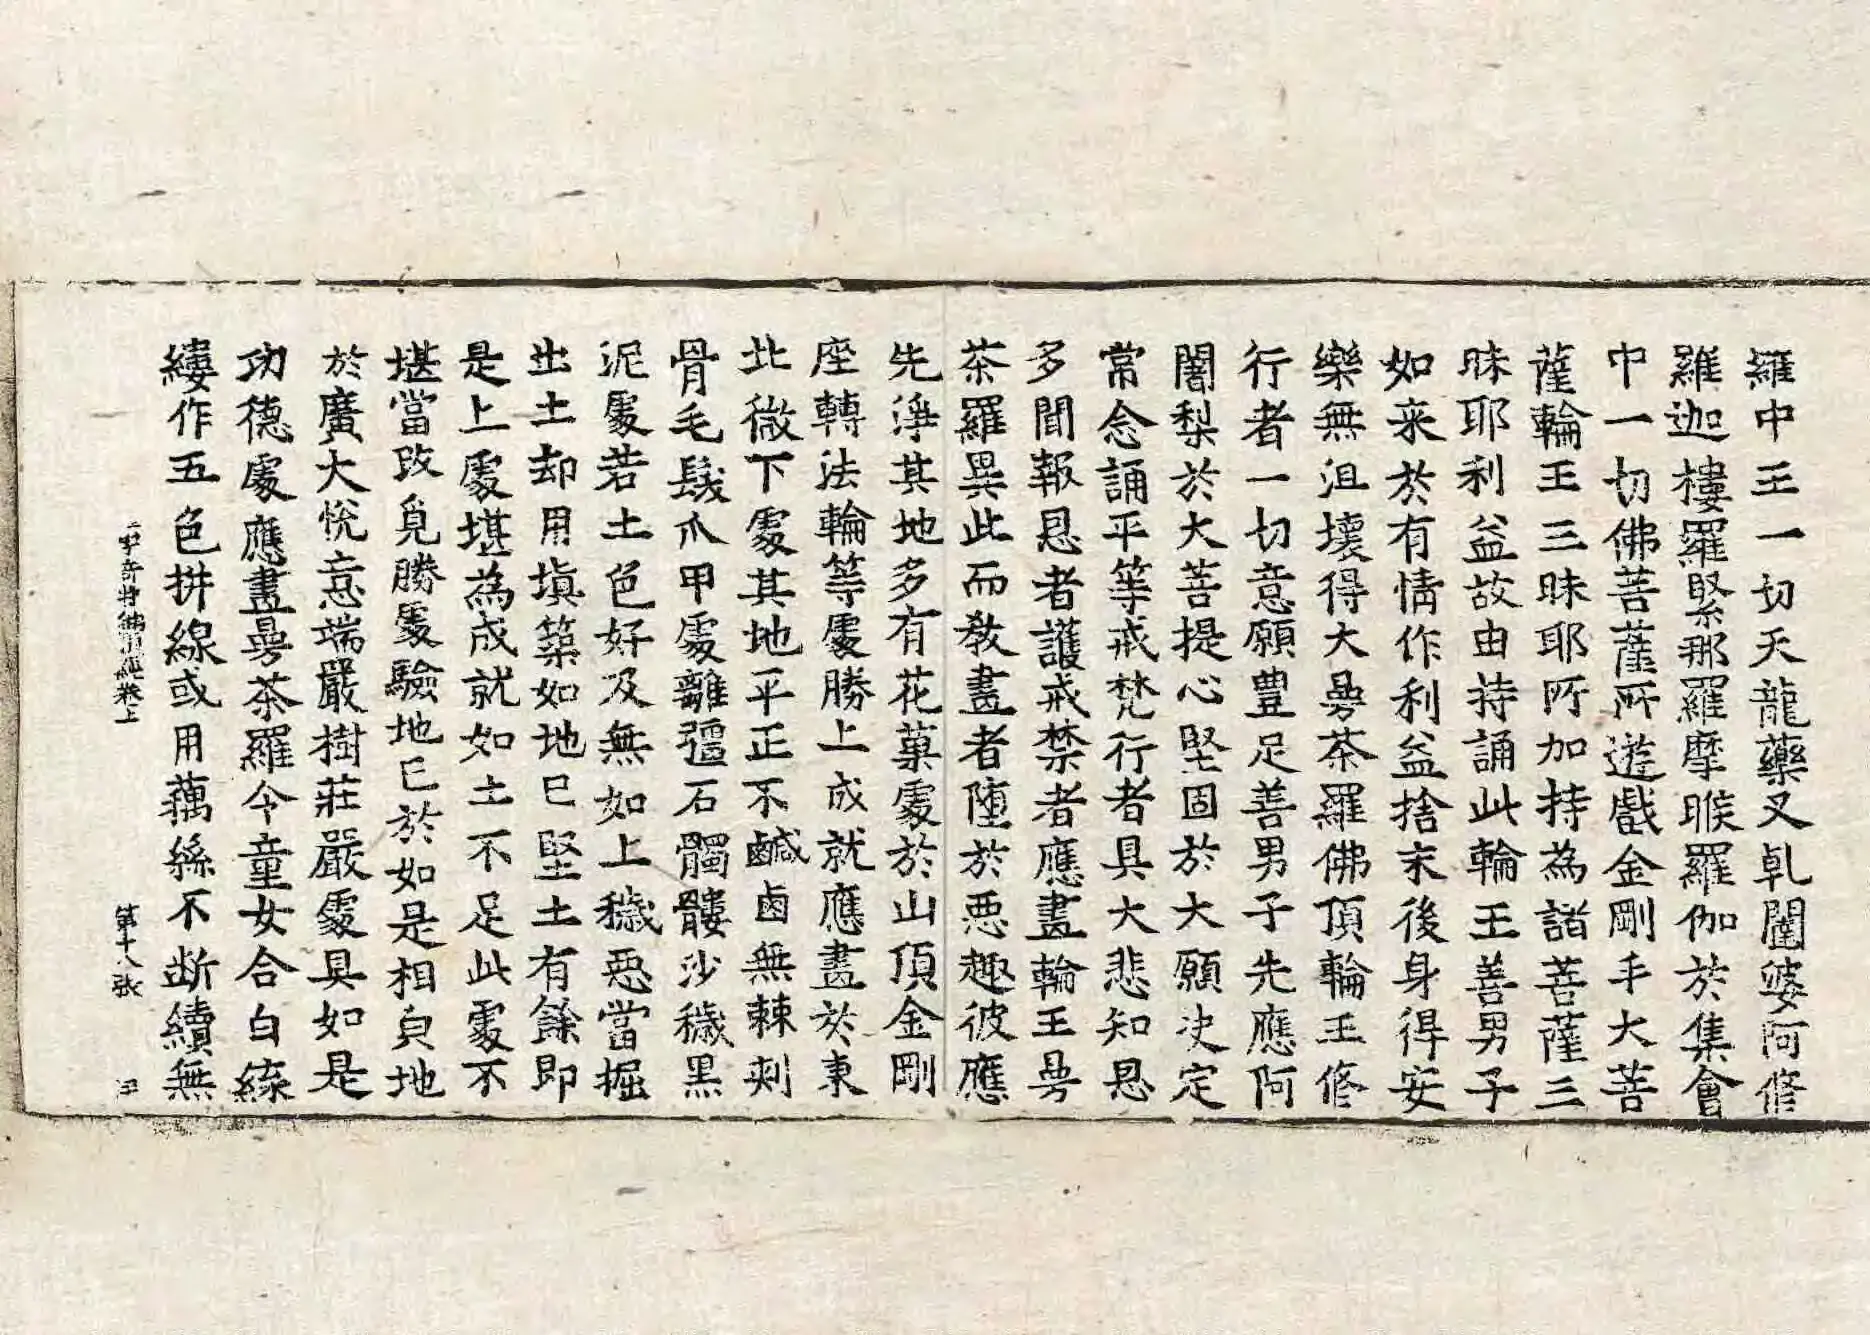 羅中王一切天龍藥叉乹闥婆阿修
羅迦樓羅緊那羅摩睺羅伽於集會
中一切佛菩薩所遊戲金剛手大菩
薩輪王三昧耶所加持為諸菩薩三
昧耶利益故由持誦此輪王善男子
如来於有情作利益捨末後身得安
樂無沮壞得大曼茶羅佛頂輪王修
行者一切意願豊足善男子先應阿
闍梨於大菩提心堅固於大願决定
常念誦平等戒梵行者具大悲知恩
多聞報恩者護戒禁者應畫輪王曼
茶羅異此而教畫者墮於惡趣彼應
先淨其地多有花菓處於山頂金剛
座轉法輪等處勝上成就應畫於東
北微下處其地平正不鹹鹵無棘刺
骨毛髮爪甲處離礓石髑髏沙穢黑
泥處若土色好及無如上穢惡當掘
出土却用塡築如地已堅土有餘即
是上處堪為成就如土不足此處不
堪當改覓勝處驗地已於如是相皃地
於廣大悅意端嚴樹莊嚴處具如是
功德處應畫曼茶羅令童女合白綫
縷作五色拼線或用藕絲不断續無
一字奇特佛頂經卷上 第十八張